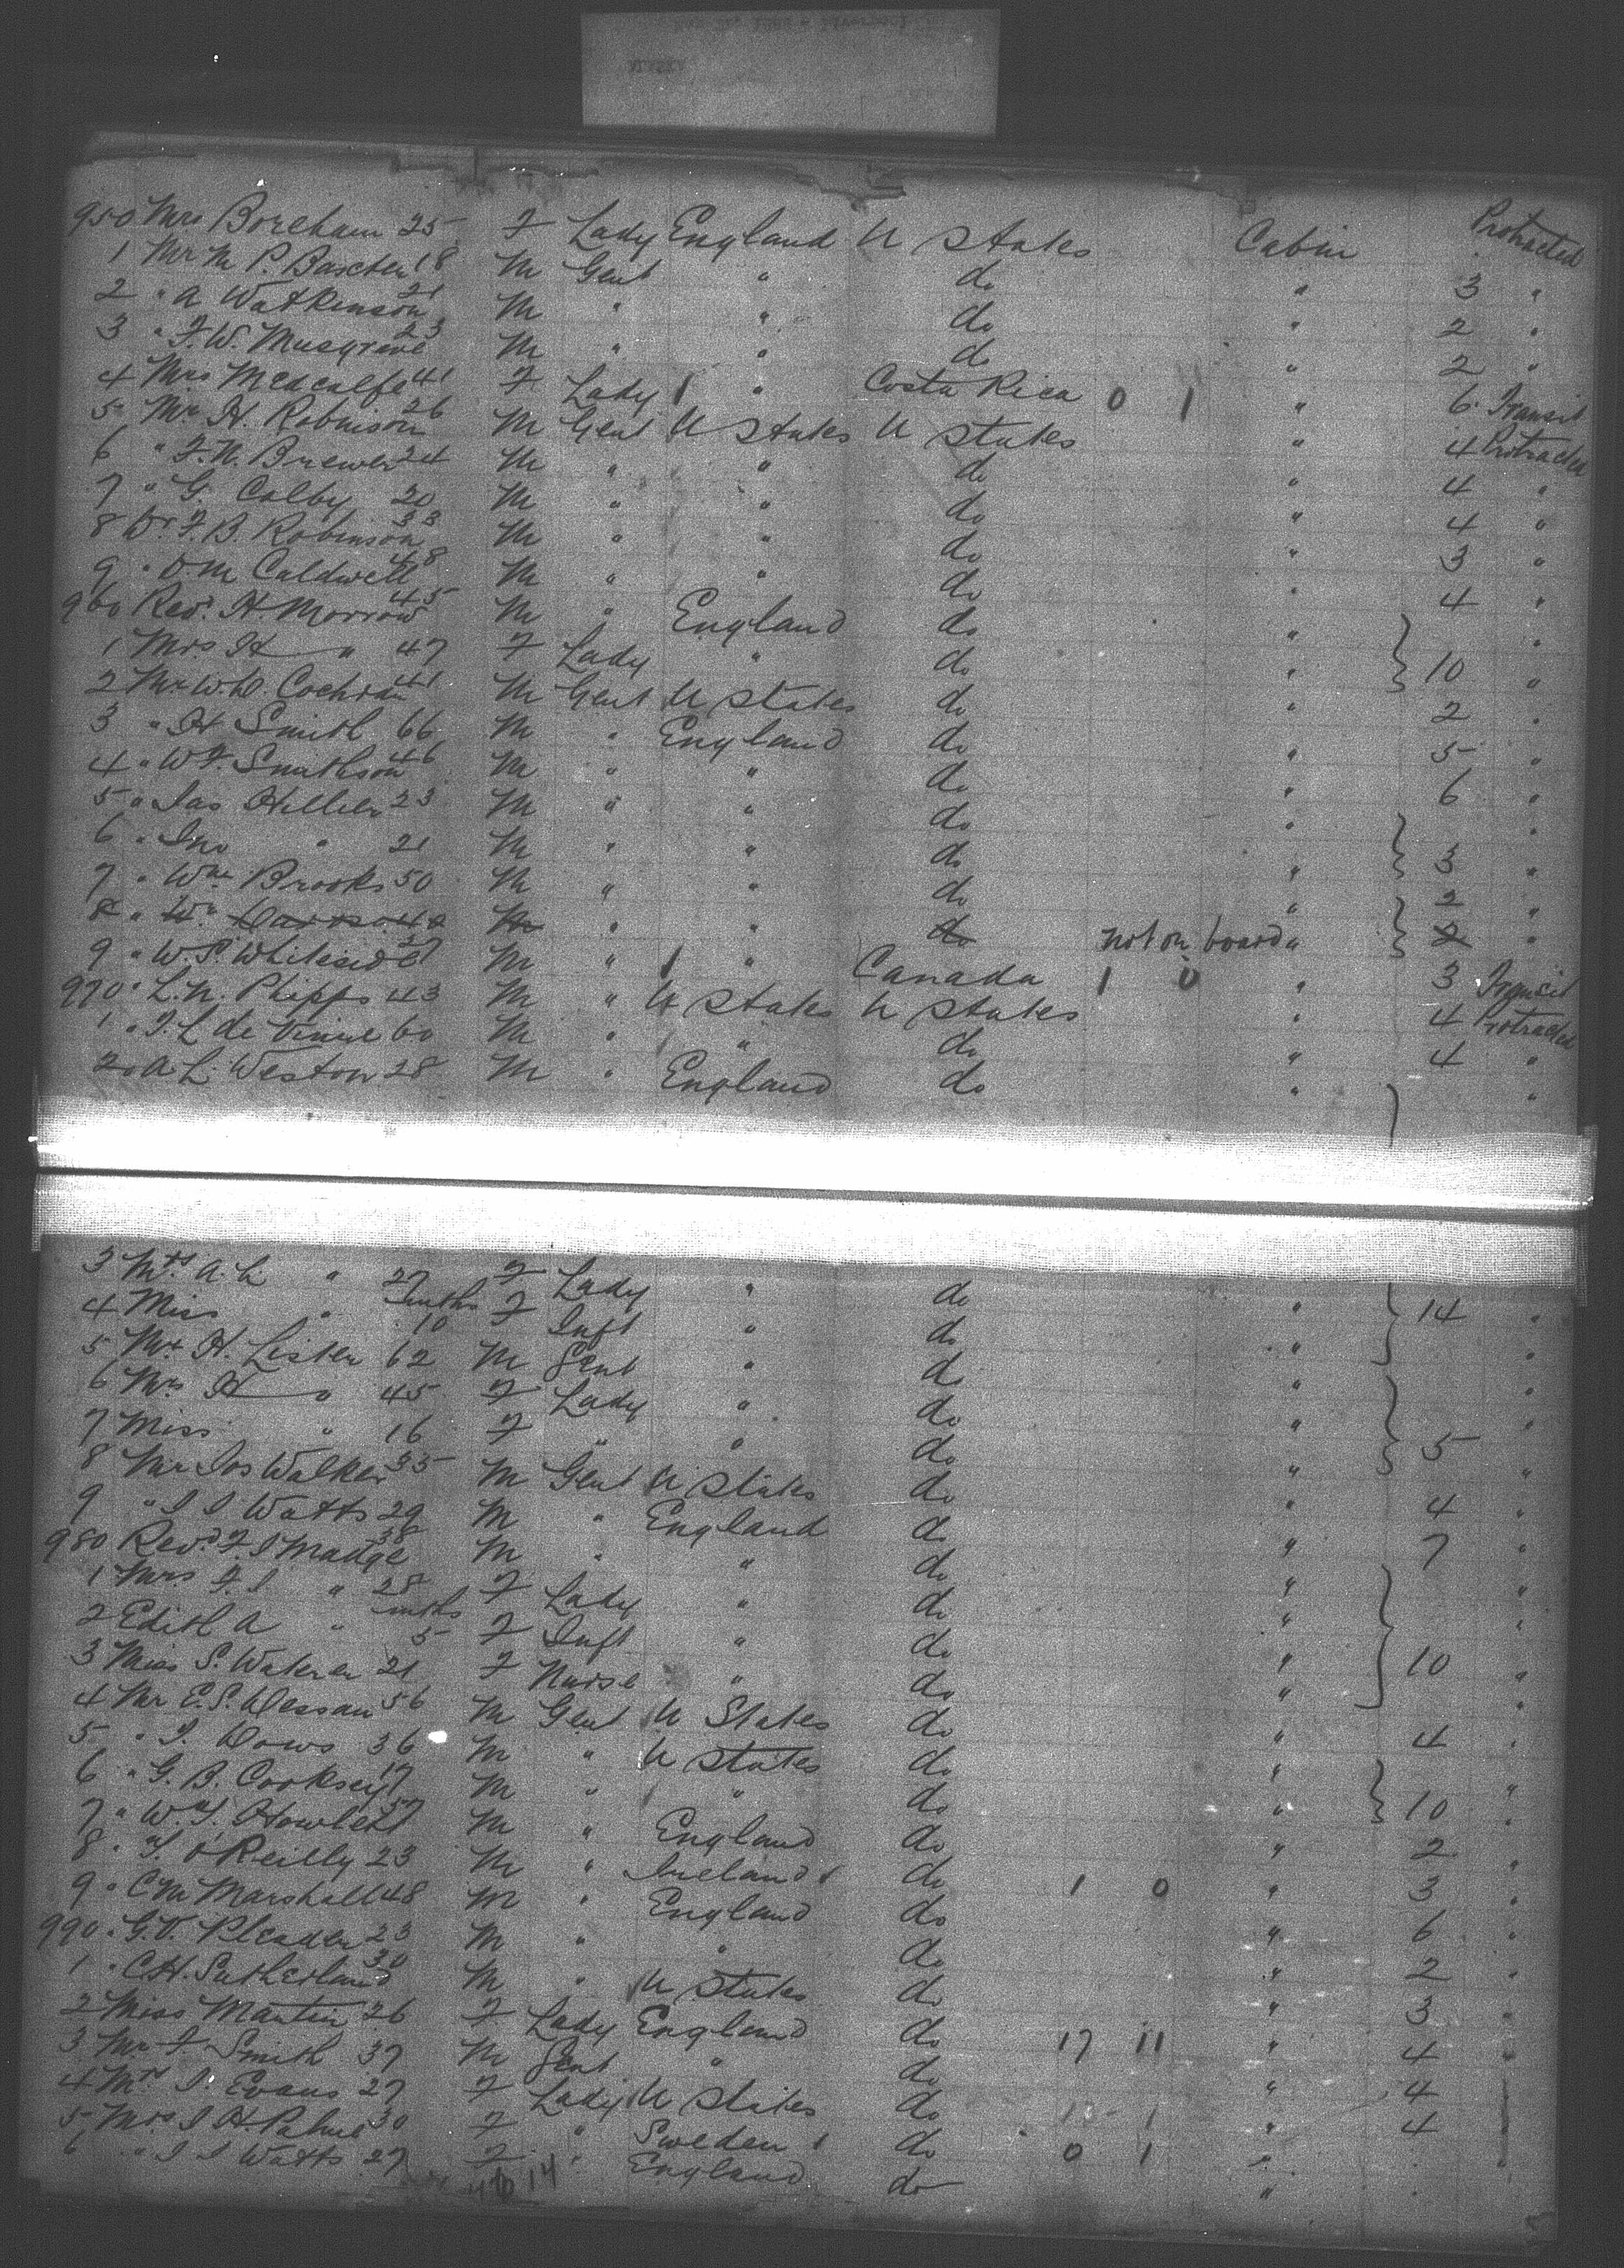 950 Mrs Boreham 25 F Lady England U States Cabin Protracted
1 Mr M P. Baxter 18 M Gent " do " 3 "
2 " A Watkinson 21 M " " do " 2 "
3 " F. W. Musgrave 23 M " " do " 2 "
4 Mrs Medcalfe 41 F Lady 1 " Costa Rica 0 1 " 6 Transit
5 Mr H. Robinson 26 M Gent U States U States " 4 Protracted
6 " F. N. Brewer 24 M " " do " 4 "
7 " G. Colby 20 M " " do " 4 "
8 Dr F. B. Robinson 33 M " " do " 3 "
9 " D. M Caldwell 48 M " " do " 4 "
960 Revd. H. Morrow 45 M " England do " "
1 Mrs H " 47 F Lady " do " 10 "
2 Mr W. D. Cochran 41 M Gent U States do " 2 "
3 " H Smith 66 M " England do " 5 "
4 " W F. Smithson 46 M " " do " 6 "
5 " Jas Hillier 23 M " " do " "
6 " Jno " 21 M " " do " 3 "
7 " Wm Brooks 50 M " " do " 2 "
8 " W. 42 M " " do not on board " 2 "
9 " W. S. Whiteside M " 1 " Canada 1 0 " 3 Transit
970 " L. N. Phipps 43 M " U States U States " 4 Protracted
1 " T. L de Vinne 60 M " " do " 4 "
2 " A L. Weston 28 M " England do " "
3 Mrs. A. L " 27 F Lady " do " 14 "
4 Miss " mths 10 F Inft " do " "
5 Mr H. Lister 62 M Gent " do " "
6 Mrs H " 45 F Lady " do " "
7 Miss " 16 F " " do " 5 "
8 Mr Jos Walker 35 M Gent U States do " 4 "
9 " J J Watts 29 M " England do " 7 "
980 Revd. F. J Madge 38 M " " do " "
1 Mrs F. J " 28 F Lady " do " "
2 Edith A " mths 5 F Inft " do " 10 "
3 Miss S. Waterer 21 F Nurse " do " "
4 Mr E. S. Dessau 56 M Gent U States do " 4 "
5 " J. Dows 36 M " U States do " "
6 " G. B. Cooksey 17 M " " do " 10 "
7 " W. Y. Howlett 57 M " England do " 2 "
8 " T. O'Reilly 23 M " Ireland 1 do 1 0 " 3 "
9 " C M Marshall 48 M " England do " 6 "
990 " G. V. Pleader 23 M " " do " 2 "
1 " C. H. Sutherland 30 M " U States do " 3 "
2 Miss Martin 26 F Lady England do 17 11 " 4 "
3 Mr F Smith 37 M Gent " do " 4
4 Mrs J. Evans 27 F Lady U States do 1 " 4
5 Mrs J H. 30 F " Sweden 1 do 0 1 "
6 " J J Watts 27 F " England do "
14